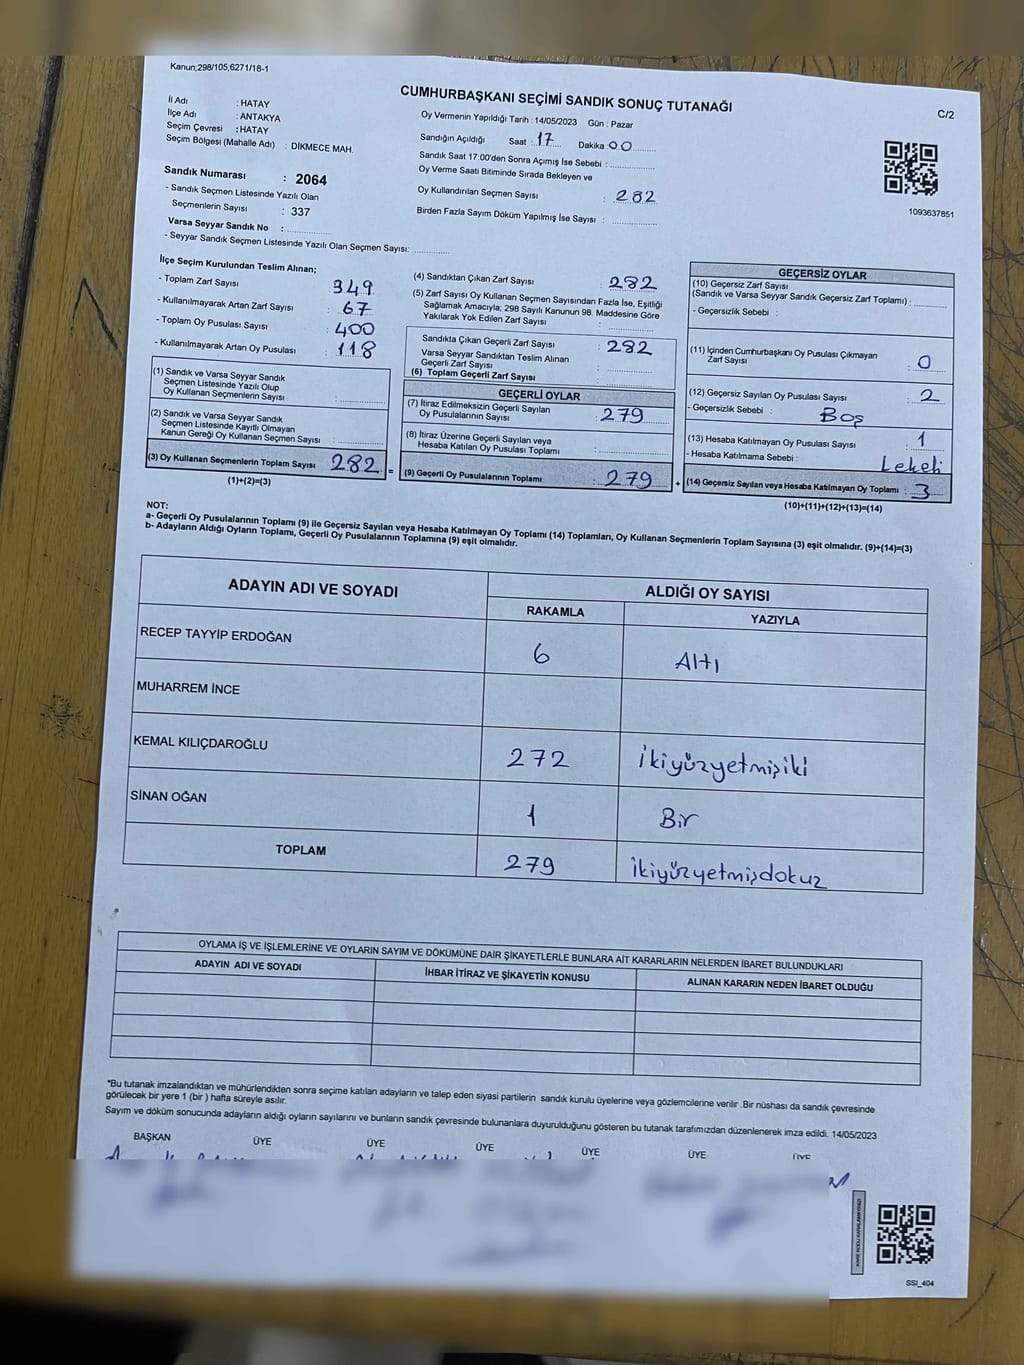 Kanun;298/105;6271/18-1
CUMHURBAŞKANI SEÇİMİ SANDIK SONUÇ TUTANAĞI
C/2
İl Adı : HATAY
İlçe Adı : ANTAKYA
Seçim Çevresi : HATAY
Seçim Bölgesi (Mahalle Adı) : DİKMECE MAH.
Oy Vermenin Yapıldığı Tarih :14/05/2023 Gün : Pazar
Sandığın Açıldığı Saat : 17 Dakika 00
Sandık Saat 17:00'den Sonra Açımış İse Sebebi :
Oy Verme Saati Bitiminde Sırada Bekleyen ve
Oy Kullandırılan Seçmen Sayısı : 282
Birden Fazla Sayım Döküm Yapılmış İse Sayısı :
1093637851
Sandık Numarası : 2064
- Sandık Seçmen Listesinde Yazılı Olan
Seçmenlerin Sayısı : 337
Varsa Seyyar Sandık No :
- Seyyar Sandık Seçmen Listesinde Yazılı Olan Seçmen Sayısı:
İlçe Seçim Kurulundan Teslim Alınan;
- Toplam Zarf Sayısı : 349
- Kullanılmayarak Artan Zarf Sayısı : 67
- Toplam Oy Pusulası Sayısı : 400
- Kullanılmayarak Artan Oy Pusulası : 118
(1) Sandık ve Varsa Seyyar Sandık
Seçmen Listesinde Yazılı Olup
Oy Kullanan Seçmenlerin Sayısı :
(2) Sandık ve Varsa Seyyar Sandık
Seçmen Listesinde Kayıtlı Olmayan
Kanun Gereği Oy Kullanan Seçmen Sayısı :
(3) Oy Kullanan Seçmenlerin Toplam Sayısı 282
(1)+(2)=(3)
=
(4) Sandıktan Çıkan Zarf Sayısı : 282
(5) Zarf Sayısı Oy Kullanan Seçmen Sayısından Fazla İse, Eşitliği
Sağlamak Amacıyla; 298 Sayılı Kanunun 98. Maddesine Göre
Yakılarak Yok Edilen Zarf Sayısı :
Sandıkta Çıkan Geçerli Zarf Sayısı : 282
Varsa Seyyar Sandıktan Teslim Alınan
Geçerli Zarf Sayısı :
(6) Toplam Geçerli Zarf Sayısı :
GEÇERLİ OYLAR
(7) İtiraz Edilmeksizin Geçerli Sayılan
Oy Pusulalarının Sayısı : 279
(8) İtiraz Üzerine Geçerli Sayılan veya
Hesaba Katılan Oy Pusulası Toplamı :
(9) Geçerli Oy Pusulalarının Toplamı : 279
+
GEÇERSİZ OYLAR
(10) Geçersiz Zarf Sayısı
(Sandık ve Varsa Seyyar Sandık Geçersiz Zarf Toplamı) :
- Geçersizlik Sebebi :
(11) İçinden Cumhurbaşkanı Oy Pusulası Çıkmayan
Zarf Sayısı : 0
(12) Geçersiz Sayılan Oy Pusulası Sayısı : 2
- Geçersizlik Sebebi : Boş
(13) Hesaba Katılmayan Oy Pusulası Sayısı : 1
- Hesaba Katılmama Sebebi : Lekeli
(14) Geçersiz Sayılan veya Hesaba Katılmayan Oy Toplamı : 3
(10)+(11)+(12)+(13)=(14)
NOT:
a- Geçerli Oy Pusulalarının Toplamı (9) ile Geçersiz Sayılan veya Hesaba Katılmayan Oy Toplamı (14) Toplamları, Oy Kullanan Seçmenlerin Toplam Sayısına (3) eşit olmalıdır. (9)+(14)=(3)
b- Adayların Aldığı Oyların Toplamı, Geçerli Oy Pusulalarının Toplamına (9) eşit olmalıdır.
ADAYIN ADI VE SOYADI
ALDIĞI OY SAYISI
RAKAMLA YAZIYLA
RECEP TAYYİP ERDOĞAN 6 Altı
MUHARREM İNCE
KEMAL KILIÇDAROĞLU 272 ikiyüzyetmişiki
SİNAN OĞAN 1 Bir
TOPLAM 279 ikiyüzyetmişdokuz
OYLAMA İŞ VE İŞLEMLERİNE VE OYLARIN SAYIM VE DÖKÜMÜNE DAİR ŞİKAYETLERLE BUNLARA AİT KARARLARIN NELERDEN İBARET BULUNDUKLARI
ADAYIN ADI VE SOYADI İHBAR İTİRAZ VE ŞİKAYETİN KONUSU ALINAN KARARIN NEDEN İBARET OLDUĞU
*Bu tutanak imzalandıktan ve mühürlendikten sonra seçime katılan adayların ve talep eden siyasi partilerin sandık kurulu üyelerine veya gözlemcilerine verilir .Bir nüshası da sandık çevresinde
görülecek bir yere 1 (bir ) hafta süreyle asılır.
Sayım ve döküm sonucunda adayların aldığı oyların sayılarını ve bunların sandık çevresinde bulunanlara duyurulduğunu gösteren bu tutanak tarafımızdan düzenlenerek imza edildi. 14/05/2023
BAŞKAN ÜYE ÜYE ÜYE ÜYE ÜYE ÜYE
SSI_404